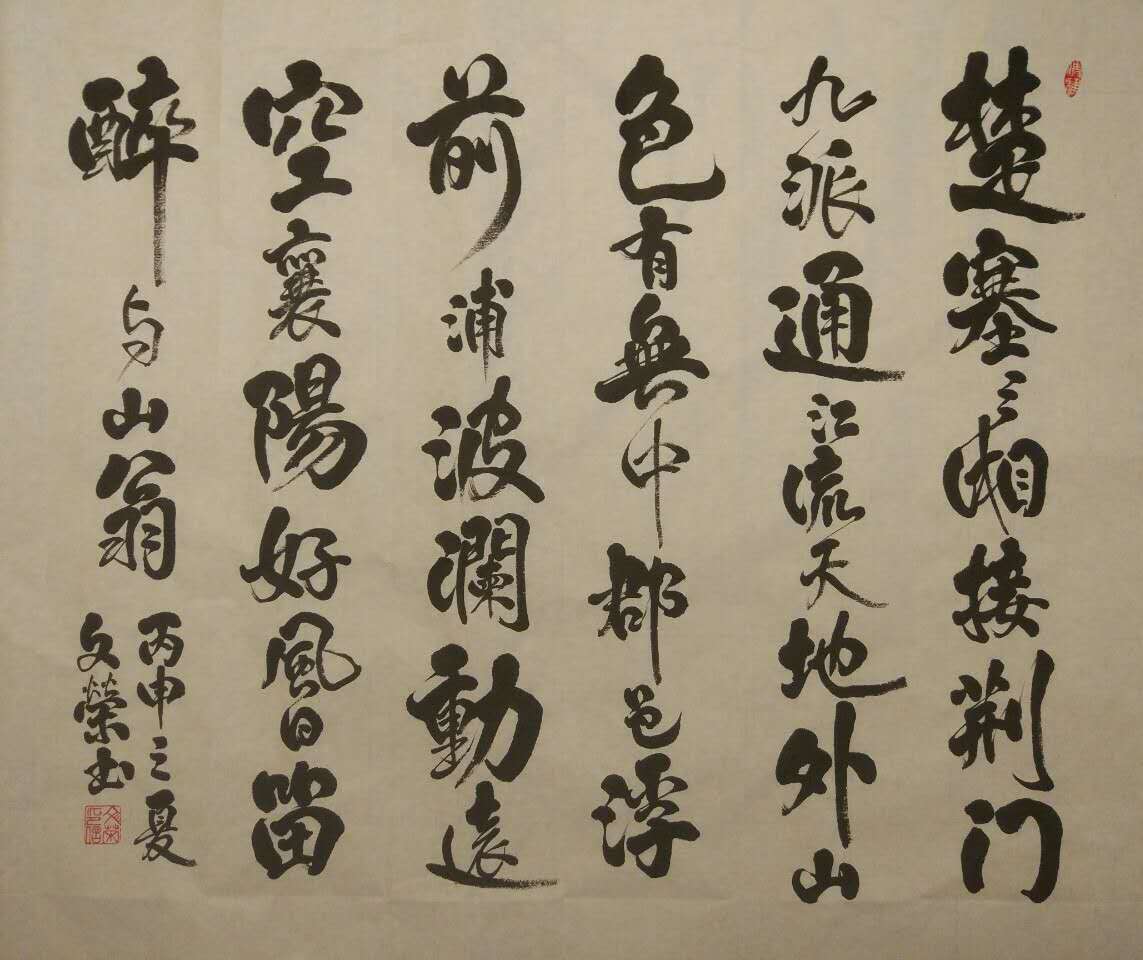 楚塞三湘接荆门
九派通江流天地外山
色有無中郡邑浮
前浦波瀾動遠
空襄陽好風日留
醉与山翁
丙申之夏
文榮书